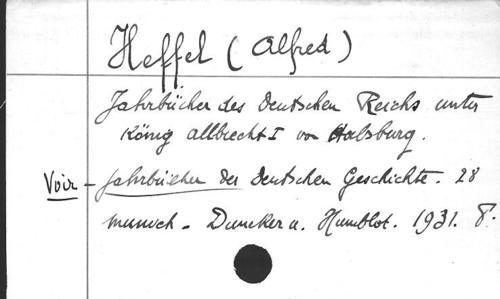 Heffel (Alfred)
Jahrbücher des Deutschen Reichs unter
König Allbrecht I von Habsburg.
Voir - Jahrbücher der deutschen Geschichte. 28
munich - Duncker u. Humblot. 1931. 8°.